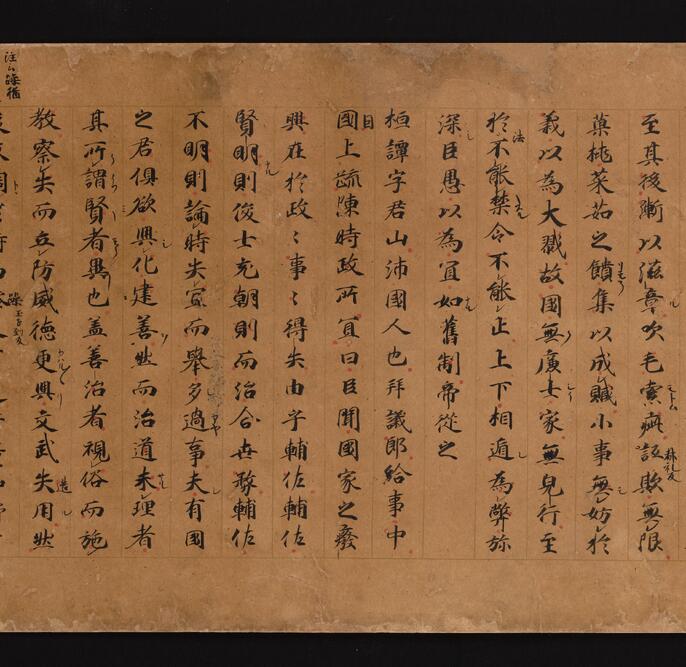 至其後漸以滋章吹毛索疵詆欺無限
菓桃菜茹之饋集以成贓小事無妨於
義以為大戮故國無廉士家無完行至
於不能禁令不能止上下相遁為弊弥
法
深臣愚以為宜如舊制帝從之
桓譚字君山沛國人也拜議郎給事中
國上䟽陳時政所宜曰臣聞國家之廢
興在於政〻事〻得失由乎輔佐輔佐
賢明則俊士充朝則而治合世務輔佐
不明則論時失宜而舉多過事夫有國
之君俱欲興化建善然而治道未理者
其所謂賢者異也盖善治者視俗而施
教察失而立防威德更興文武失用然